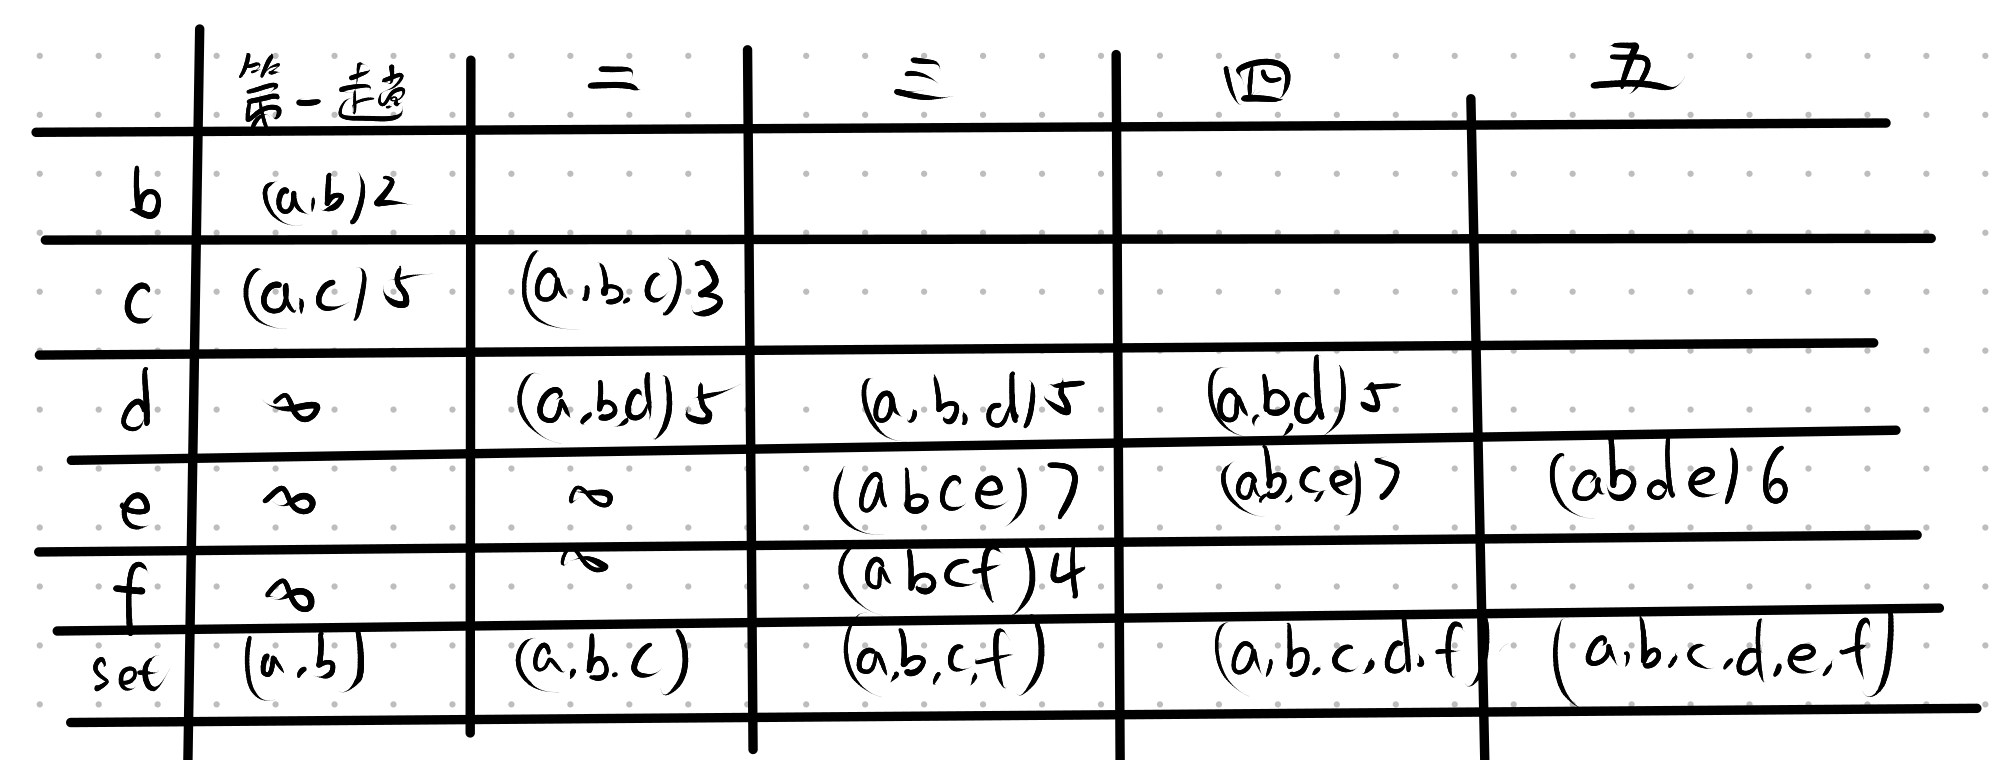 第一趟 二 三 四 五
b (a,b)2
c (a,c)5 (a,b.c)3
d ∞ (a,bd)5 (a,b,d)5 (a,b,d)5
e ∞ ∞ (abce)7 (ab,c,e)7 (abde)6
f ∞ ∞ (abcf)4
set (a,b) (a,b.c) (a,b,c,f) (a,b.c,d.f) (a,b,c,d,e,f)